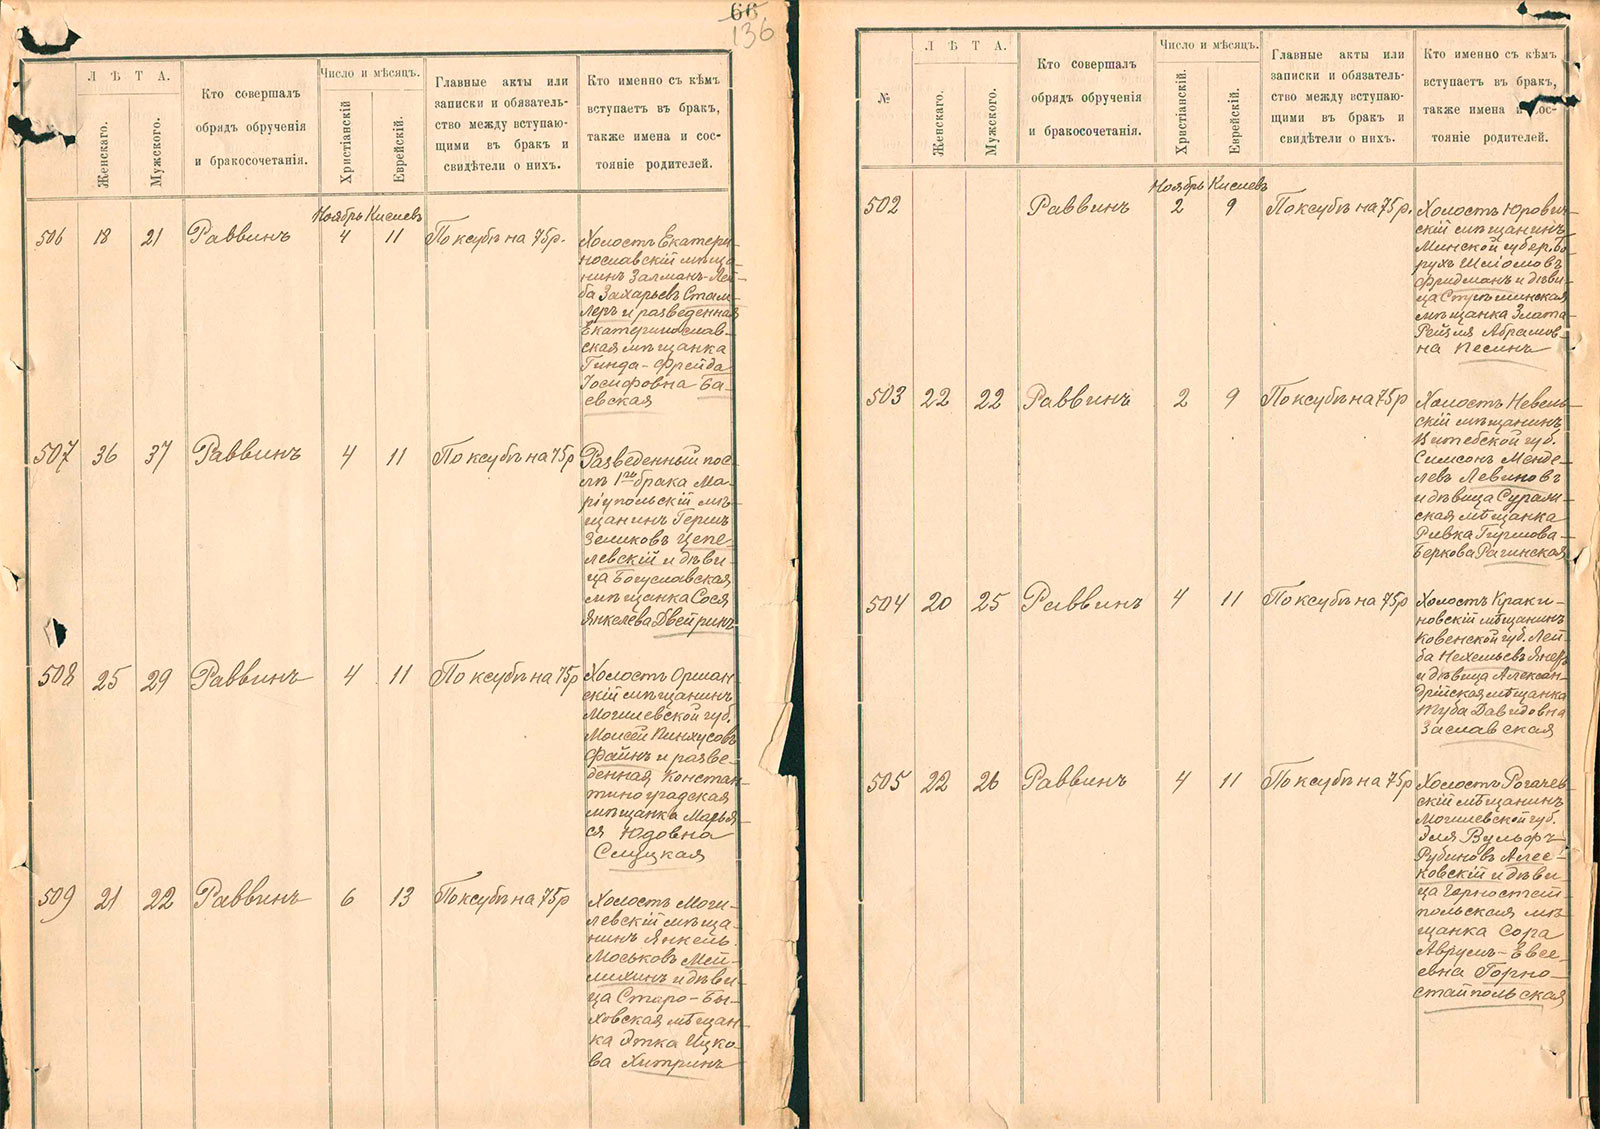 66
136
ЛѢТА.
Женскаго.
Мужского.
Кто совершалъ
обрядъ обрученія
и бракосочетанія.
Число и мѣсяцъ.
Христіанскій
Еврейскій.
Главные акты или
записки и обязатель-
ство между вступаю-
щими въ бракъ и
свидѣтели о нихъ.
Кто именно съ кѣмъ
вступаетъ въ бракъ,
также имена и сос-
тояніе родителей.
Ноябрь Кислевъ
506 18 21 Раввинъ 4 11 По ксубѣ на 75р.
Холостъ Екатери-
нославскій мѣща-
нинъ Залманъ-Лей-
ба Захарьевъ Стам-
леръ и разведенная
Екатеринослав-
ская мѣщанка
Гинда-Фрейда
Іосифовна Ба-
евская
507 36 37 Раввинъ 4 11 По ксубѣ на 75р
Разведенный пос-
лѣ 1го брака Ма-
ріупольскій мѣ-
щанинъ Гершъ
Зеликовъ Цепе-
левскій и дѣви-
ца Богуславская
мѣщанка Сося
Янкелева Двейринъ
508 25 29 Раввинъ 4 11 По ксубѣ на 75р
Холостъ Оршан-
скій мѣщанинъ
Могилевской губ.
Моисей Пинхусовъ
Файнъ и разве-
денная Констан-
тиноградская
мѣщанка Марья-
ся Юдовна
Слуцкая
509 21 22 Раввинъ 6 13 По ксубѣ на 75р
Холостъ Моги-
левскій мѣща-
нинъ Янкель
Моськовъ Мей-
лихинъ и дѣви-
ца Старо-Бы-
ховская мѣщан-
ка Этка Ицко-
ва Хитринъ
№
ЛѢТА.
Женскаго.
Мужского.
Кто совершалъ
обрядъ обрученія
и бракосочетанія.
Число и мѣсяцъ.
Христіанскій.
Еврейскій.
Главные акты или
записки и обязатель-
ство между вступаю-
щими въ бракъ и
свидѣтели о нихъ.
Кто именно съ кѣмъ
вступаетъ въ бракъ,
также имена и сос-
тояніе родителей.
Ноябрь Кислевъ
502 Раввинъ 2 9 По ксубѣ на 75р.
Холостъ Юрович-
скій мѣщанинъ
Минской губер. Бо-
рухъ Шліомовъ
Фридманъ и дѣви-
ца
мѣщанка Злата-
Рейзля Абрамов-
на Песинъ
503 22 22 Раввинъ 2 9 По ксубѣ на 75р
Холостъ Невель-
скій мѣщанинъ
Витебской губ.
Симсонъ Менде-
левъ Левиновъ
и дѣвица Сураж-
ская мѣщанка
Ривка Гиршова-
Беркова Рагинская
504 20 25 Раввинъ 4 11 По ксубѣ на 75р
Холостъ Краки-
новскій мѣщанинъ
Ковенской губ. Лей-
ба Нехельевъ
и дѣвица Алексан-
дрійская мѣщанка
Туба Давидовна
Заславская
505 22 26 Раввинъ 4 11 По ксубѣ на 75р
Холостъ Рогачев-
скій мѣщанинъ
Могилевской губ.
Эля Вульфъ
Рубиновъ Алее-
ковскій и дѣви-
ца Горностай-
польская мѣ-
щанка Сора
Аврумъ-Евсе-
евна Горно-
стайпольская